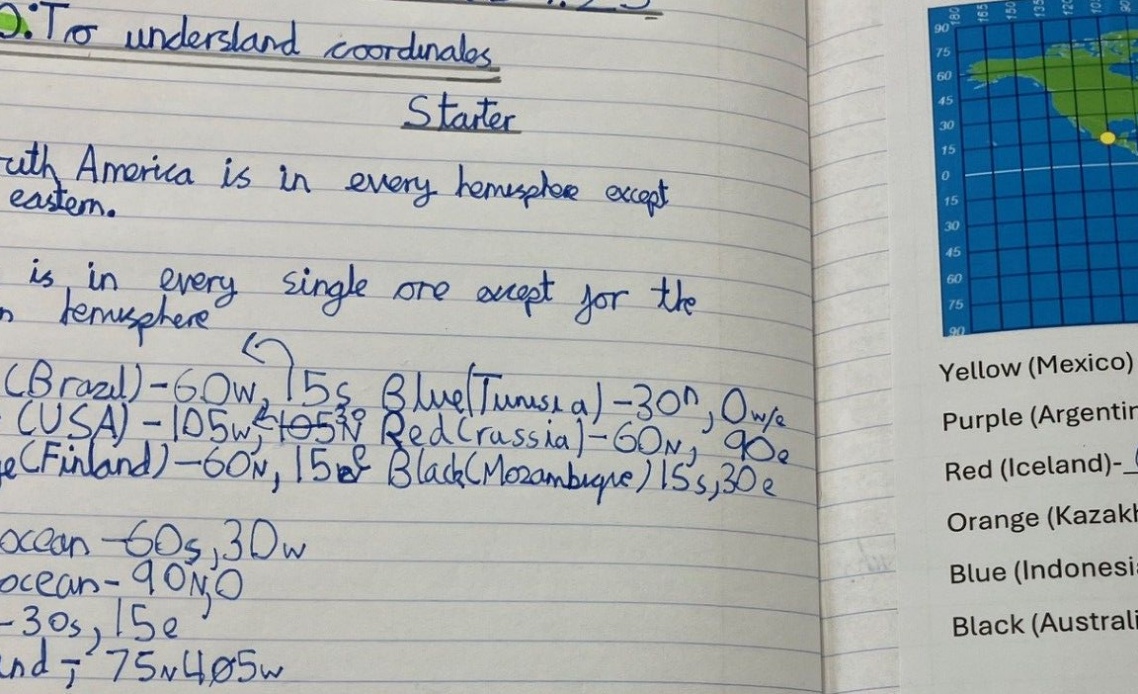 O: To understand coordinates
Starter
uth America is in every hemisphere except
eastern.
is in every single one except for the
n hemisphere
(Brazil) - 60w, 15s Blue (Tunisia) - 30n, 0w/e
(USA) - 105w, Red (russia) - 60N, 90e
e (Finland) - 60N, 15 Black (Mozambique) 15s, 30e
ocean - 60s, 30w
ocean - 90N, 0
- 30s, 15e
and - 75N 405w
180 165 150 135 120 105 90
90
75
60
45
30
15
0
15
30
45
60
75
90
Yellow (Mexico)
Purple (Argentin
Red (Iceland)-_
Orange (Kazakh
Blue (Indonesia
Black (Australi